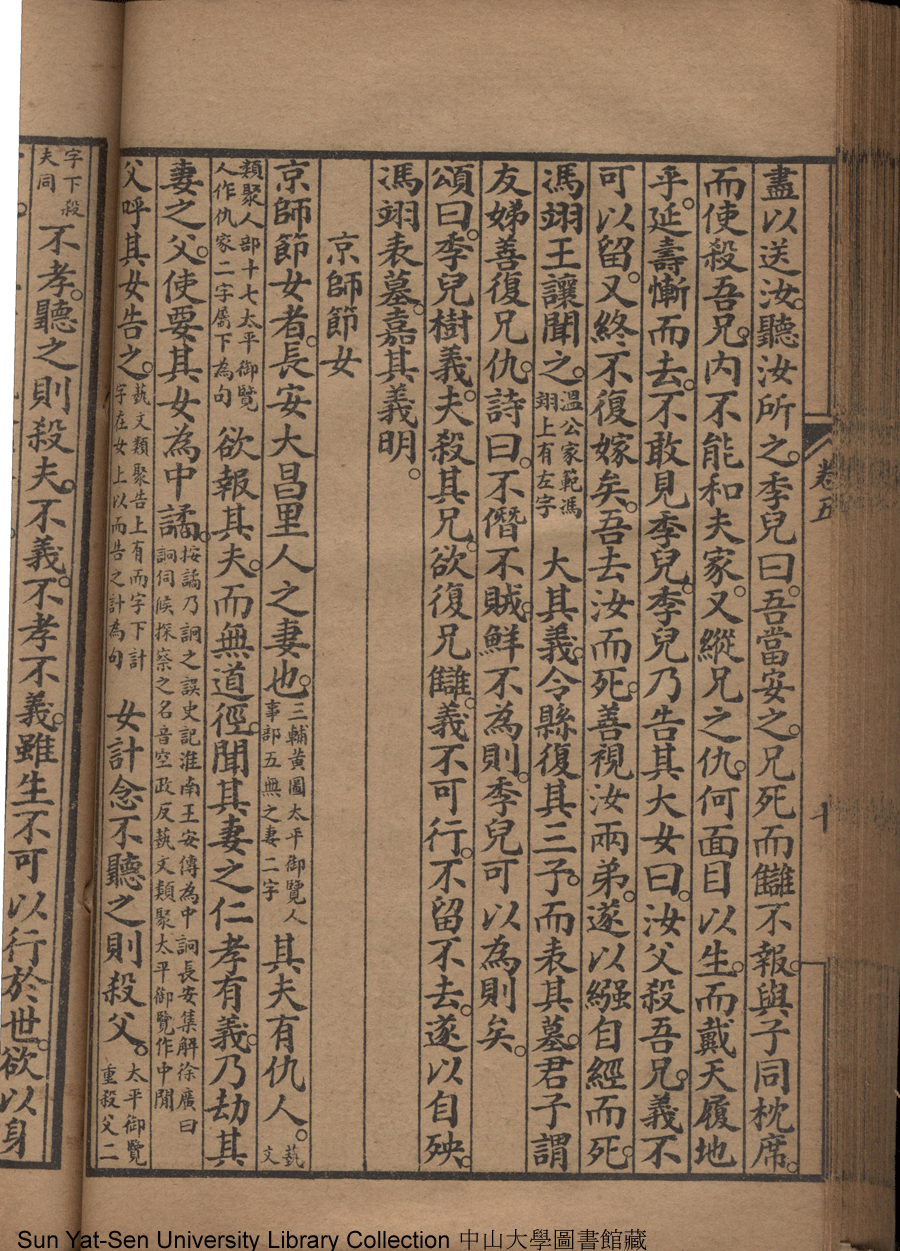 卷五
十
盡以送汝。聽汝所之。季兒曰。吾當安之。兄死而讎不報。與子同枕席。
而使殺吾兄。內不能和夫家。又縱兄之仇。何面目以生。而戴天履地
乎。延壽慚而去。不敢見季兒。季兒乃告其大女曰。汝父殺吾兄。義不
可以留。又終不復嫁矣。吾去汝而死。善視汝兩弟。遂以繦自經而死。
馮翊王讓聞之。溫公家範馮翊上有左字 大其義。令縣復其三子。而表其墓。君子謂
友娣善復兄仇。詩曰。不僭不賊。鮮不為則。季兒可以為則矣。
頌曰。季兒樹義。夫殺其兄。欲復兄讎。義不可行。不留不去。遂以自殃。
馮翊表墓。嘉其義明。
京師節女
京師節女者。長安大昌里人之妻也。三輔黃圖太平御覽人事部五無之妻二字 其夫有仇人。藝文
類聚人部十七太平御覽人作仇家二字屬下為句 欲報其夫。而無道徑。聞其妻之仁孝有義。乃劫其
妻之父。使要其女為中譎。按譎乃詗之誤史記淮南王安傳為中詗長安集解徐廣曰詗伺候探察之名音空政反藝文類聚太平御覽作中閒
父呼其女告之。藝文類聚告上有而字下計字在女上以而告之計為句 女計念不聽之則殺父。太平御覽重殺父二
字下殺夫同 不孝。聽之則殺夫。不義。不孝不義。雖生不可以行於世。欲以身